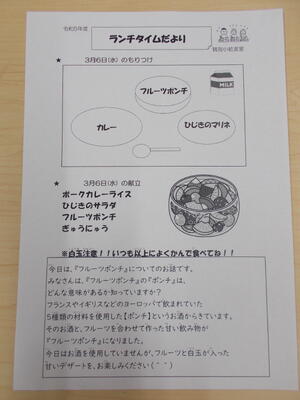 令和5年度
ランチタイムだより
★ 3月6日(水) のもりつけ
フルーツポンチ
MILK
カレー
ひじきのマリネ
★ 3月6日(水) の献立
ポークカレーライス
ひじきのサラダ
フルーツポンチ
ぎゅうにゅう
※白玉注意!!いつも以上によくかんで食べてね!!
今日は、『フルーツポンチ』についてのお話です。
みなさんは、『フルーツポンチ』の『ポンチ』は、
どんな意味があるか知っていますか?
フランスやイギリスなどのヨーロッパで飲まれていた
5種類の材料を使用した【ポンチ】というお酒からきています。
そのお酒と、フルーツを合わせて作った甘い飲み物が
『フルーツポンチ』になりました。
今日はお酒を使用していませんが、フルーツと白玉が入った
甘いデザートを、お楽しみください(^^)